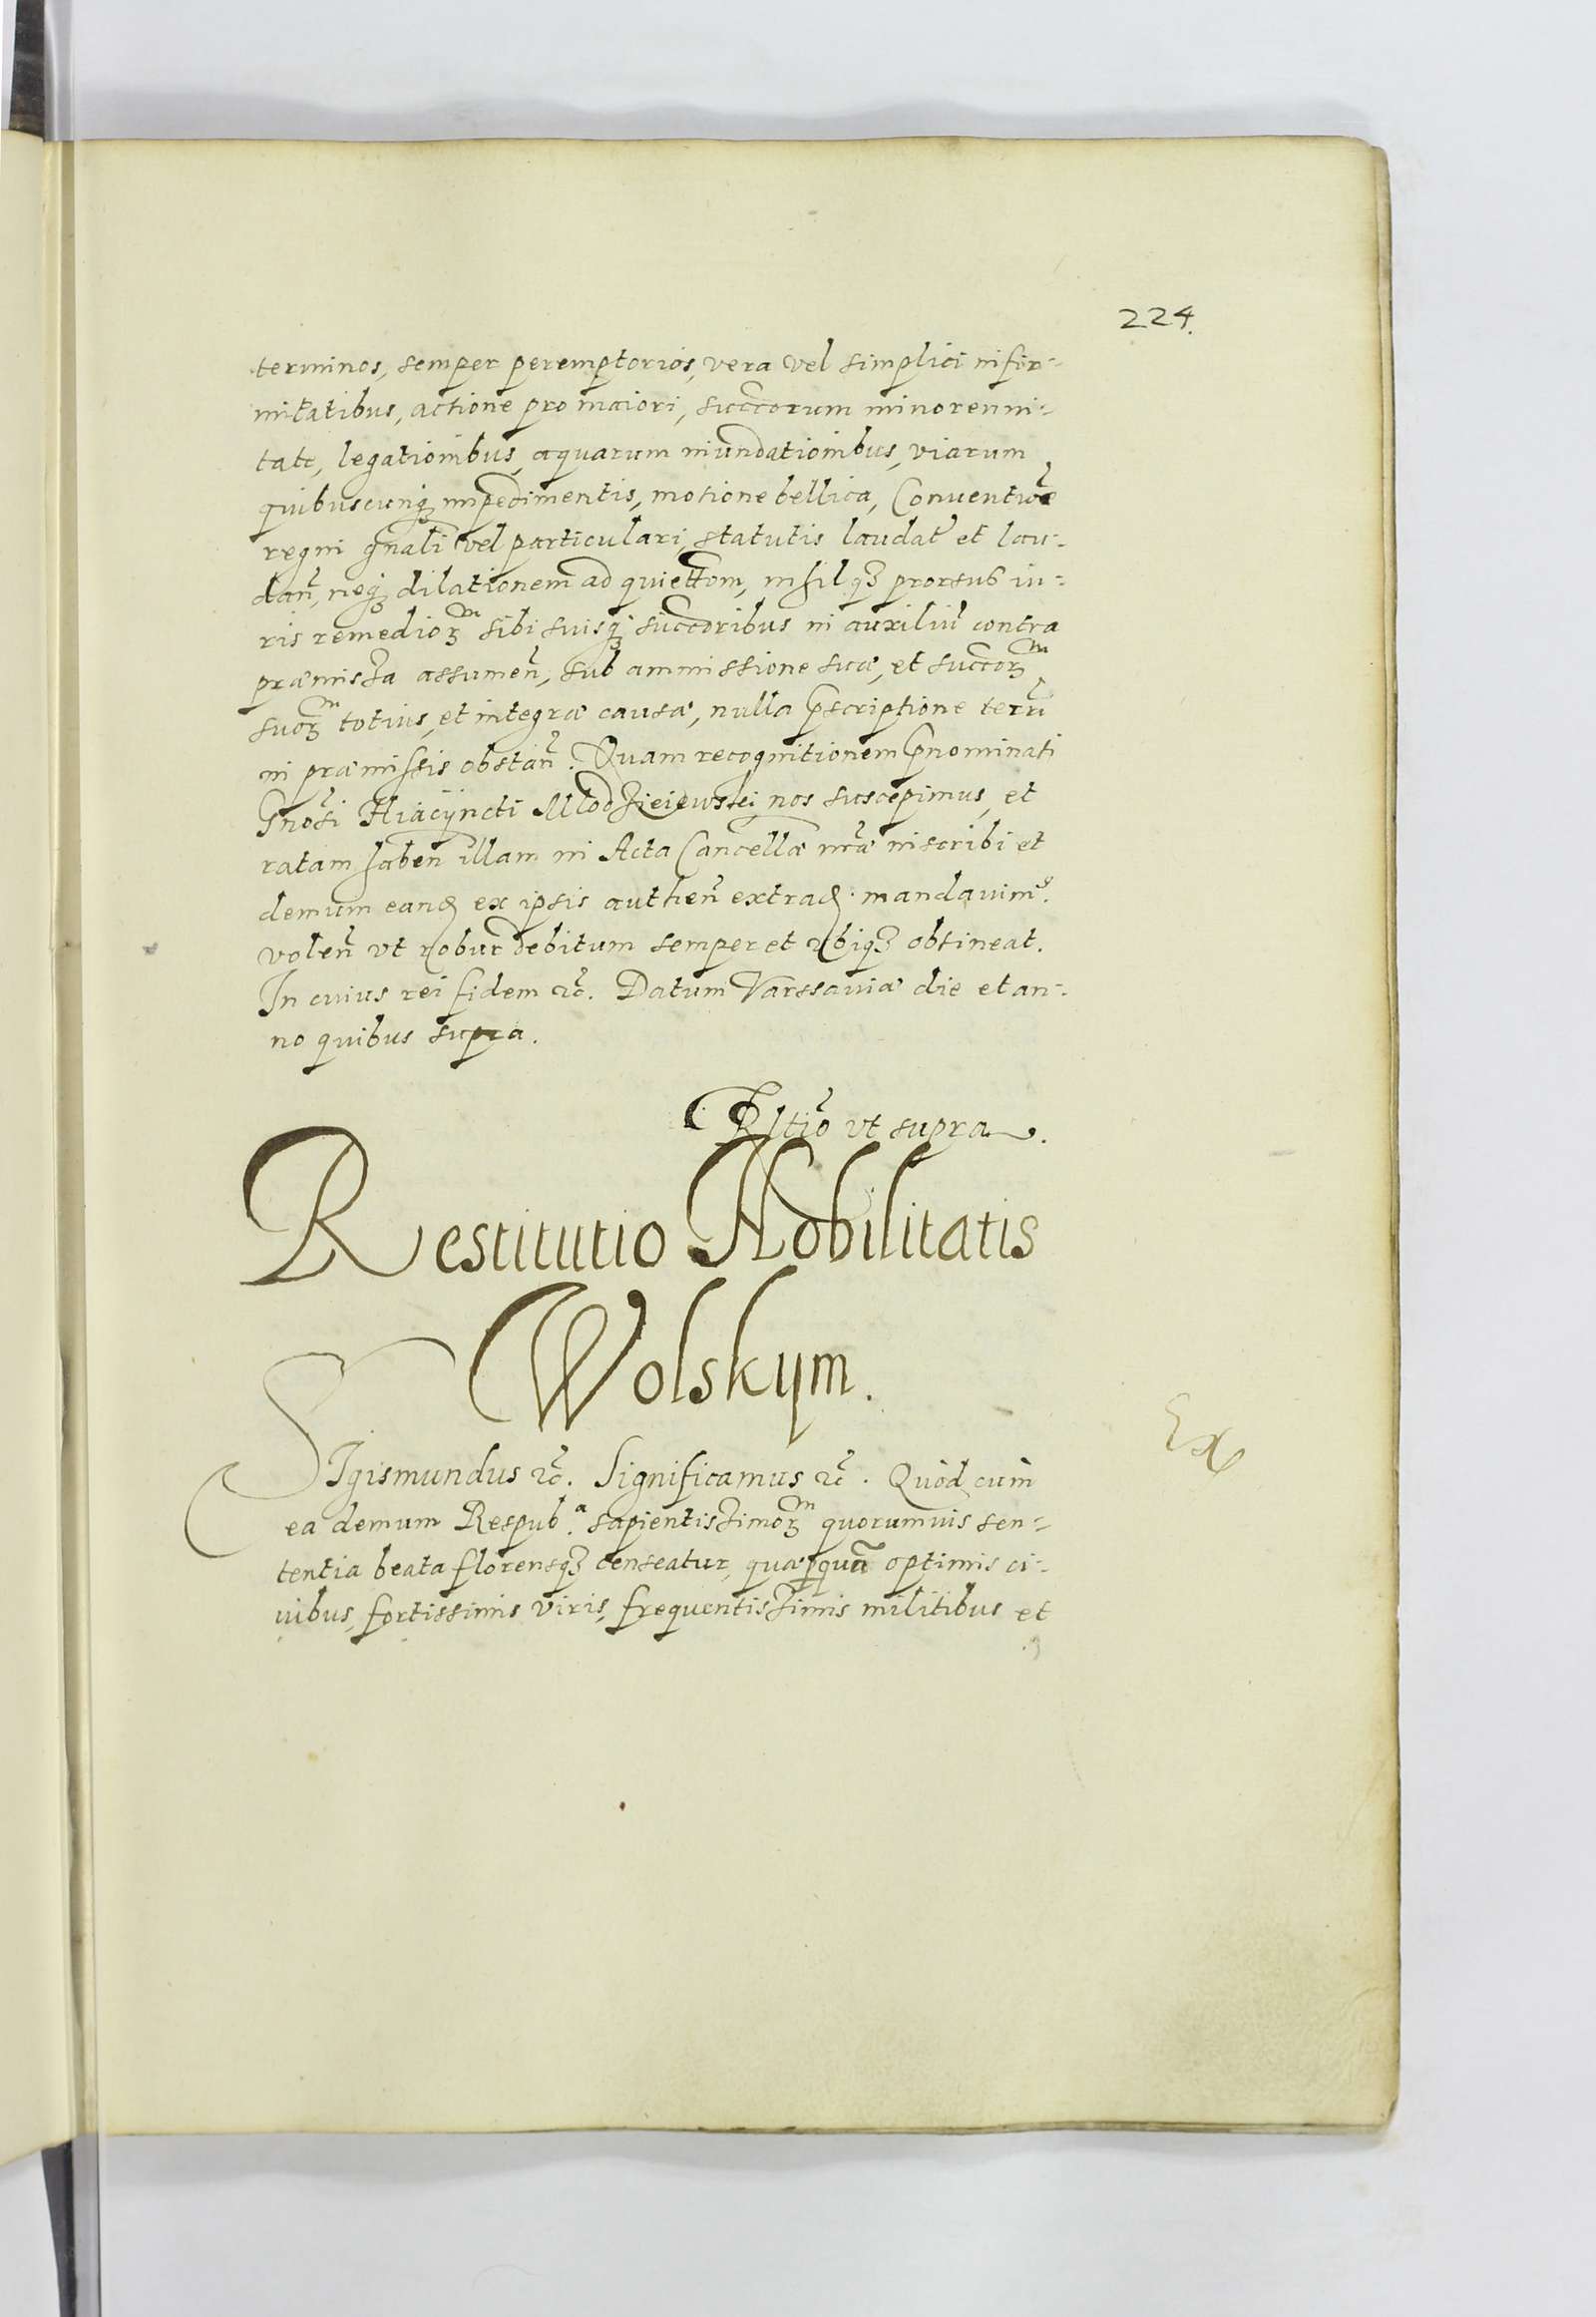 224.
terminos, semper peremptorios, vera vel simplici infir-
mitatibus, actione pro maiori, succorum minorenni-
tate, legationibus, aquarum inundationibus, viarum
quibuscunqꝫ impedimentis, motione bellica, Conventuũ
regni gnali vel particulari, statutis laudat̃ et lau-
dañ, neqꝫ dilationem ad quiettom, nihilqꝫ prorsus iu-
ris remedioꝝm sibi suisqꝫ succoribus in auxiliũ contra
præmissa assumeñ, sub ammissione suæ, et succoꝝm
suoꝝm totius, et integræ causæ, nulla p̃scriptione terrũ
in præmissis obstañ. Quam recognitionem p̃nominati
Gnosi Hiacÿncti Mlodzieiewskj nos suscepimus, et
ratam haben̄ illam in Acta Cancellæ nr̃æ inscribi et
demum eand ex ipsis autheñ extrad. mandavim9.
voleñ vt robur debitum semper et vbiqꝫ obtineat.
In cuius rei fidem ꝛc̃. Datum Varssaviæ die et an-
no quibus supra.
Rltio vt supra.
Restitutio Nobilitatis
Wolskym.
SIgismundus ꝛc̃. Significamus ꝛc̃. Quòd cum
ea demum Respub.a sapientissimoꝝm quorumvis sen-
tentia beata florensqꝫ censeatur, quæ ꝑquã optimis ci-
vibus, fortissimis viris, frequentissimis militibus et
Ex